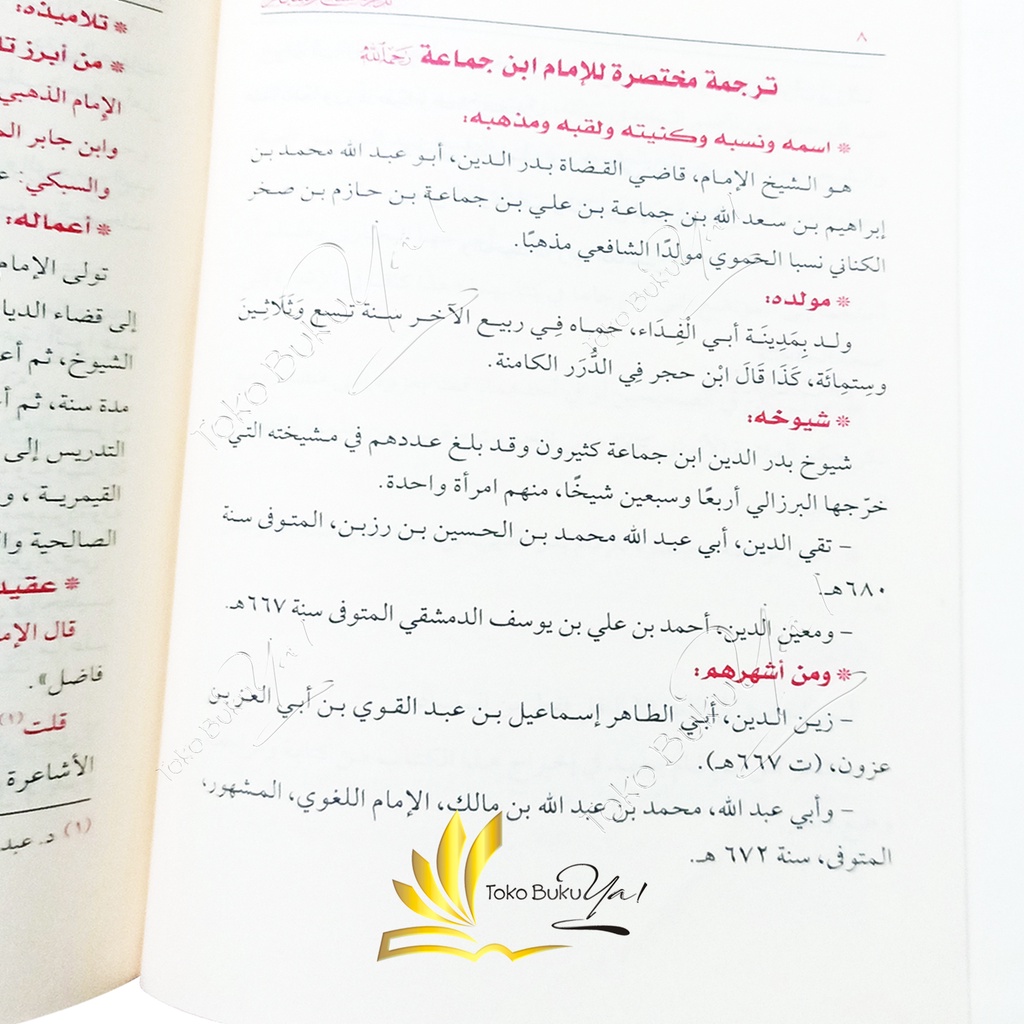 ٨
ترجمة مختصرة للإمام ابن جماعة رَحِمَهُ اللَّهُ
* اسمه ونسبه وكنيته ولقبه ومذهبه:
هو الشيخ الإمام، قاضي القضاة بدر الدين، أبو عبد الله محمد بن
إبراهيم بن سعد الله بن جماعة بن علي بن جماعة بن حازم بن صخر
الكناني نسبا الحموي مولدًا الشافعي مذهبًا.
* مولده:
ولد بِمَدِينَة أبي الْفِدَاء، حماه فِي ربيع الآخر سنة تسع وَثَلَاثِينَ
وستمِائَة، كَذَا قَالَ ابْن حجر فِي الدُّرَر الكامنة.
* شيوخه:
شيوخ بدر الدين ابن جماعة كثيرون وقد بلغ عددهم في مشيخته التي
خرّجها البرزالي أربعًا وسبعين شيخًا، منهم امرأة واحدة.
– تقي الدين، أبي عبد الله محمد بن الحسين بن رزين، المتوفى سنة
٦٨٠هـ
– ومعين الدين، أحمد بن علي بن يوسف الدمشقي المتوفى سنة ٦٦٧هـ.
* ومن أشهرهم:
– زين الدين، أبي الطاهر إسماعيل بن عبد القوي بن أبي العز بن
عزون، (ت ٦٦٧هـ).
– وأبي عبد الله، محمد بن عبد الله بن مالك، الإمام اللغوي، المشهور،
المتوفى، سنة ٦٧٢ هـ.
* تلاميذه:
* من أبرز
الإمام الذهبي
وابن جابر
والسبكي:
* أعماله:
تولى الإمام
إلى قضاء
الشيوخ، ثم
مدة سنة، ثم
التدريس إلى
القيمرية ، و
الصالحية
*
قال
فاضل».
قلت(١)
الأشاعرة
(١) د.
Toko Buku Ya!